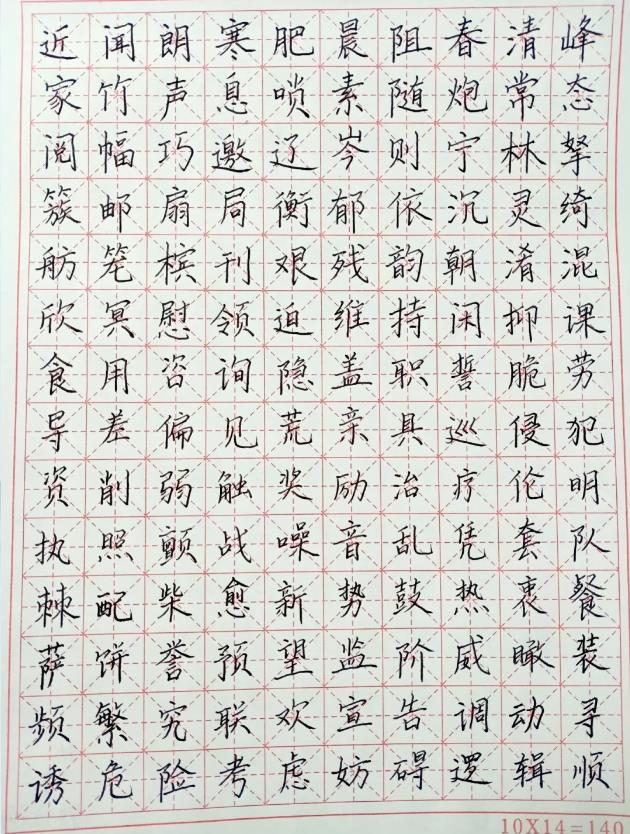 近闻朗寒肥晨阻春清峰
家竹声息唢素随炮常态
阅幅巧邀辽岑则宁林拏
簇邮扇局衡郁依沉灵绮
舫笼槟刊艰残韵朝淆混
欣冥慰领迫维持闲抑课
食用咨询隐盖职誓脆劳
导差偏见荒亲具巡侵犯
资削弱触奖励治疗伦明
执照颤战噪音乱凭套队
棘配柴愈新势鼓热裹餐
萨饼誉预望监阶威瞰装
频繁究联欢宣告调动寻
诱危险考虑妨碍逻辑顺
10X14=140